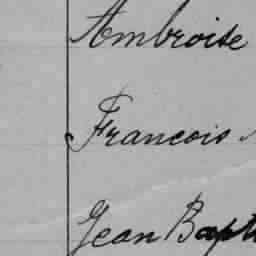 Ambroise
Francois
Jean Bapt